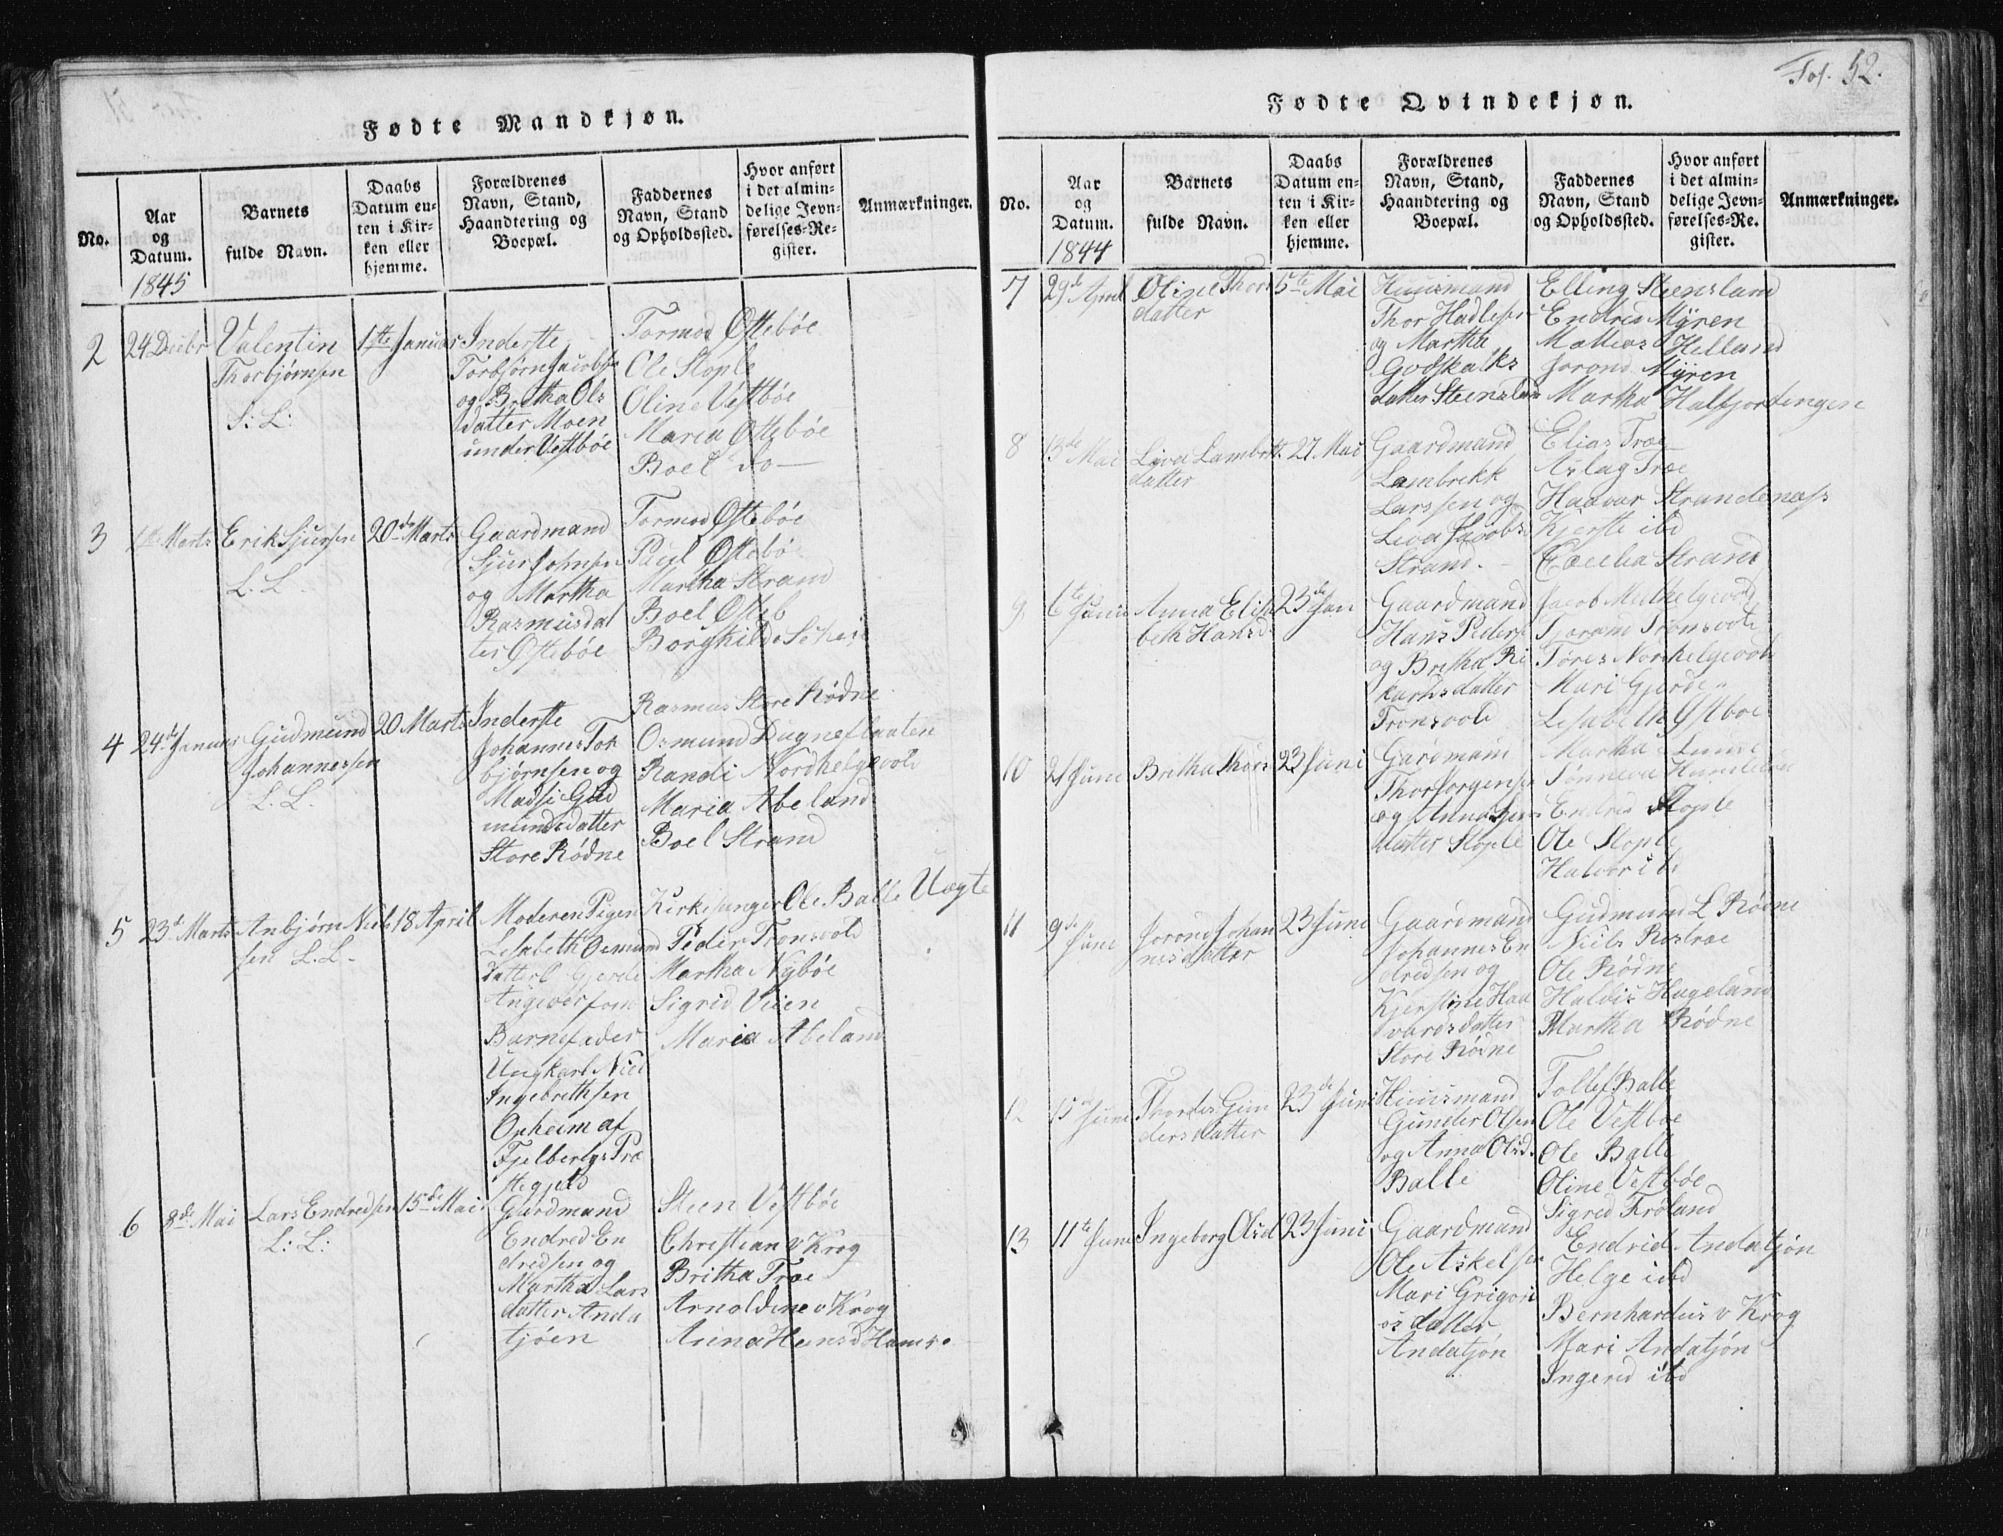 Fødte Mandkjøn.
No.
Aar
og
Datum.
1845
Barnets
fulde Navn.
Daabs
Datum en-
ten i Kir-
ken eller
hjemme.
Forældrenes
Navn, Stand,
Haandtering og
Boepæl.
Faddernes
Navn, Stand
og Opholdssted.
Hvor anført
i det almin-
delige Jevn-
førelses-Re-
gister.
Anmærkninger.
2
24 Decbr
Valentin
Thorbjørnsen
1ste Januar
Inderste
Torbjørn Jacobse
og Bretha Ols
datter Moen
under Vestbøe
Tormod Østebøe
Ole Stople
Oline Vestbøe
Maria Østebøe
Boel do
3
1ste Marts
Erik Sjursen
L. L.
20de Marts
Gaardmand
Sjur Johnsen
og Martha
Rasmusdat
ter Østebøe
Tormod Østebøe
Paul Østebøe
Martha Strand
Boel Østeb
Borghilde
4
24de Januar
Gudmund
Johannessen
L. L.
20 Marts
Inderste
Johannes Tor
bjørnsen og
Madsi Gud
mundsdatter
Store Rødne
Rasmus Store Rødne
Osmund Dugneflaaten
Randi Nordhelgevold
Maria Abeland
Boel Strand
5
23de Marts
Anbjørn Niels
sen L. L.
18 April
Moderen Pigen
Lisabeth Osmund
datter Gjerde
Angever som
Barnefader
Ungkarl Niel
Ingebrethsen
Opheim af
Fjelbergs Præ
stegjeld
Kirkesanger Ole Balle Uægte
Peder Tronsvold
Martha Nybøe
Sigrid Veien
Maria Abeland
6
8de Mai
Lars Endredsen
L: L:
15de Mai
Gaardmand
Endred En
dredsen og
Martha Lars
datter Anda
tjøen
Steen Vestbøe
Christian v Krog
Britha Træ
Arnoldine v Krog
Anna Hansd Hamre
Fol. 52.
Fødte Qvindekjøn.
No.
Aar
og
Datum.
1844
Barnets
fulde Navn.
Daabs
Datum en-
ten i Kir-
ken eller
hjemme.
Forældrenes
Navn, Stand,
Haandtering og
Boepæl.
Faddernes
Navn, Stand
og Opholdssted.
Hvor anført
i det almin-
delige Jevn-
førelses-Re-
gister.
Anmærkninger.
7
29de April
Oline Thors
datter
5te Mai
Huusmand
Thor Hadlese
og Martha
Godskalks
datter Steensland
Elling Steensland
Endred Mÿren
Mathias Helland
Jorond Mÿren
Martha Halfjordengen
8
13de Mai
Liva Lambrit
datter
27 Mai
Gaardmand
Lambrikk
Larssen og
Liva Jacobs
Strand
Elias Træ
Aslag Træ
Haavar Strandenæss
Kjerste ibd
Cecelia Strand
9
6te Juni
Anna Elisa
beth Hansd
23de Jun
Gaardmand
Hans Peders
og Bretha Ri
kardsdatter
Tronsvold
Jacob Medhelgevold
Tjoran Tronsvold
Tøres Nordhelgevold
Mari Gjerde
Lisabeth Østbøe
10
21 Juni
Britha Thors
23 Juni
Gardmand
Thor Jorgense
og Anna
datter Stople
Martha Lunde
Endred Stople
Ole Stople
Halvor ibd
11
9de Juni
Jorond Johan
nisdatter
23 Juni
Gaardmand
Johannes En
dredsen og
Kjerstine Haa
vardsdatter
Store Rødne
Gudmund L Rødne
Niels Rostræ
Ole Rødne
Haldis Hageland
Martha Rødne
12
15de Juni
Thordis Gun
dersdatter
23de Juni
Huusmand
Gunder Olsen
og Anna Olsd.
Balle
Tollef Balle
Ole Vestbøe
Ole Balle
Oline Vestbøe
Sigrid Frøland
13
11te Juni
Ingeborg Olsd
23 Juni
Gaardmand
Ole Askelsen
Mari Grigori
os datter
Andatjøn
Endrid Andatjøn
Helge ibd
Bernhardus v Krog
Mari Andatjøn
Ingerid ibd